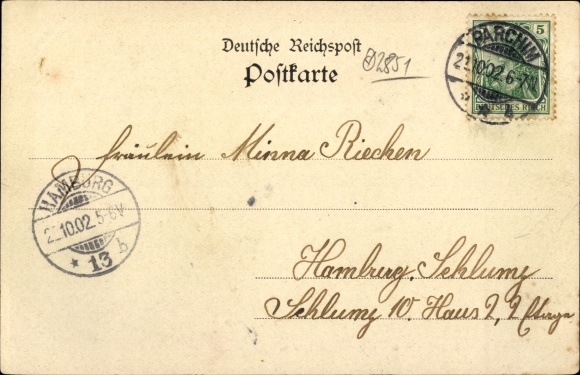 Deutsche Reichspost
Postkarte
D2851
5
PARCHIM
21.10.02.6-7N.
DEUTSCHES REICH
Fräulein Minna Riechen
HAMBURG
10.02.5-6V
* 13 b
Hamburg, Schlump
Schlump 10. Haus 2, 2 Etage